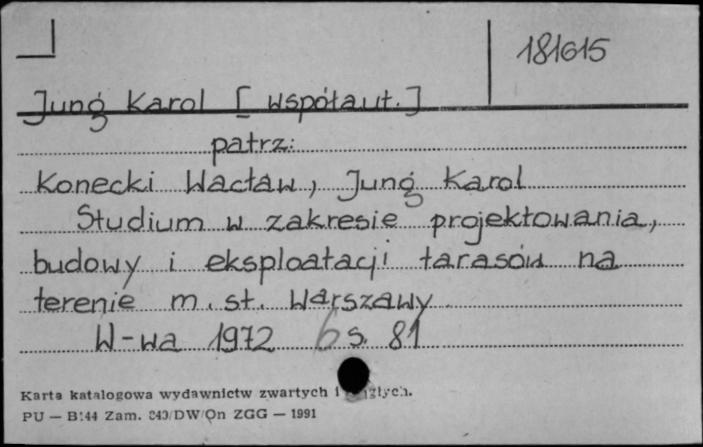 181615
Jung Karol [współaut.]
patrz:
Konecki Wacław, Jung Karol
Studium w zakresie projektowania,
budowy i eksploatacji tarasów na
terenie m. st. Warszawy
W-wa 1972 s. 81
Karta katalogowa wydawnictw zwartych i
PU — B144 Zam. 243/DW/On ZGG — 1991